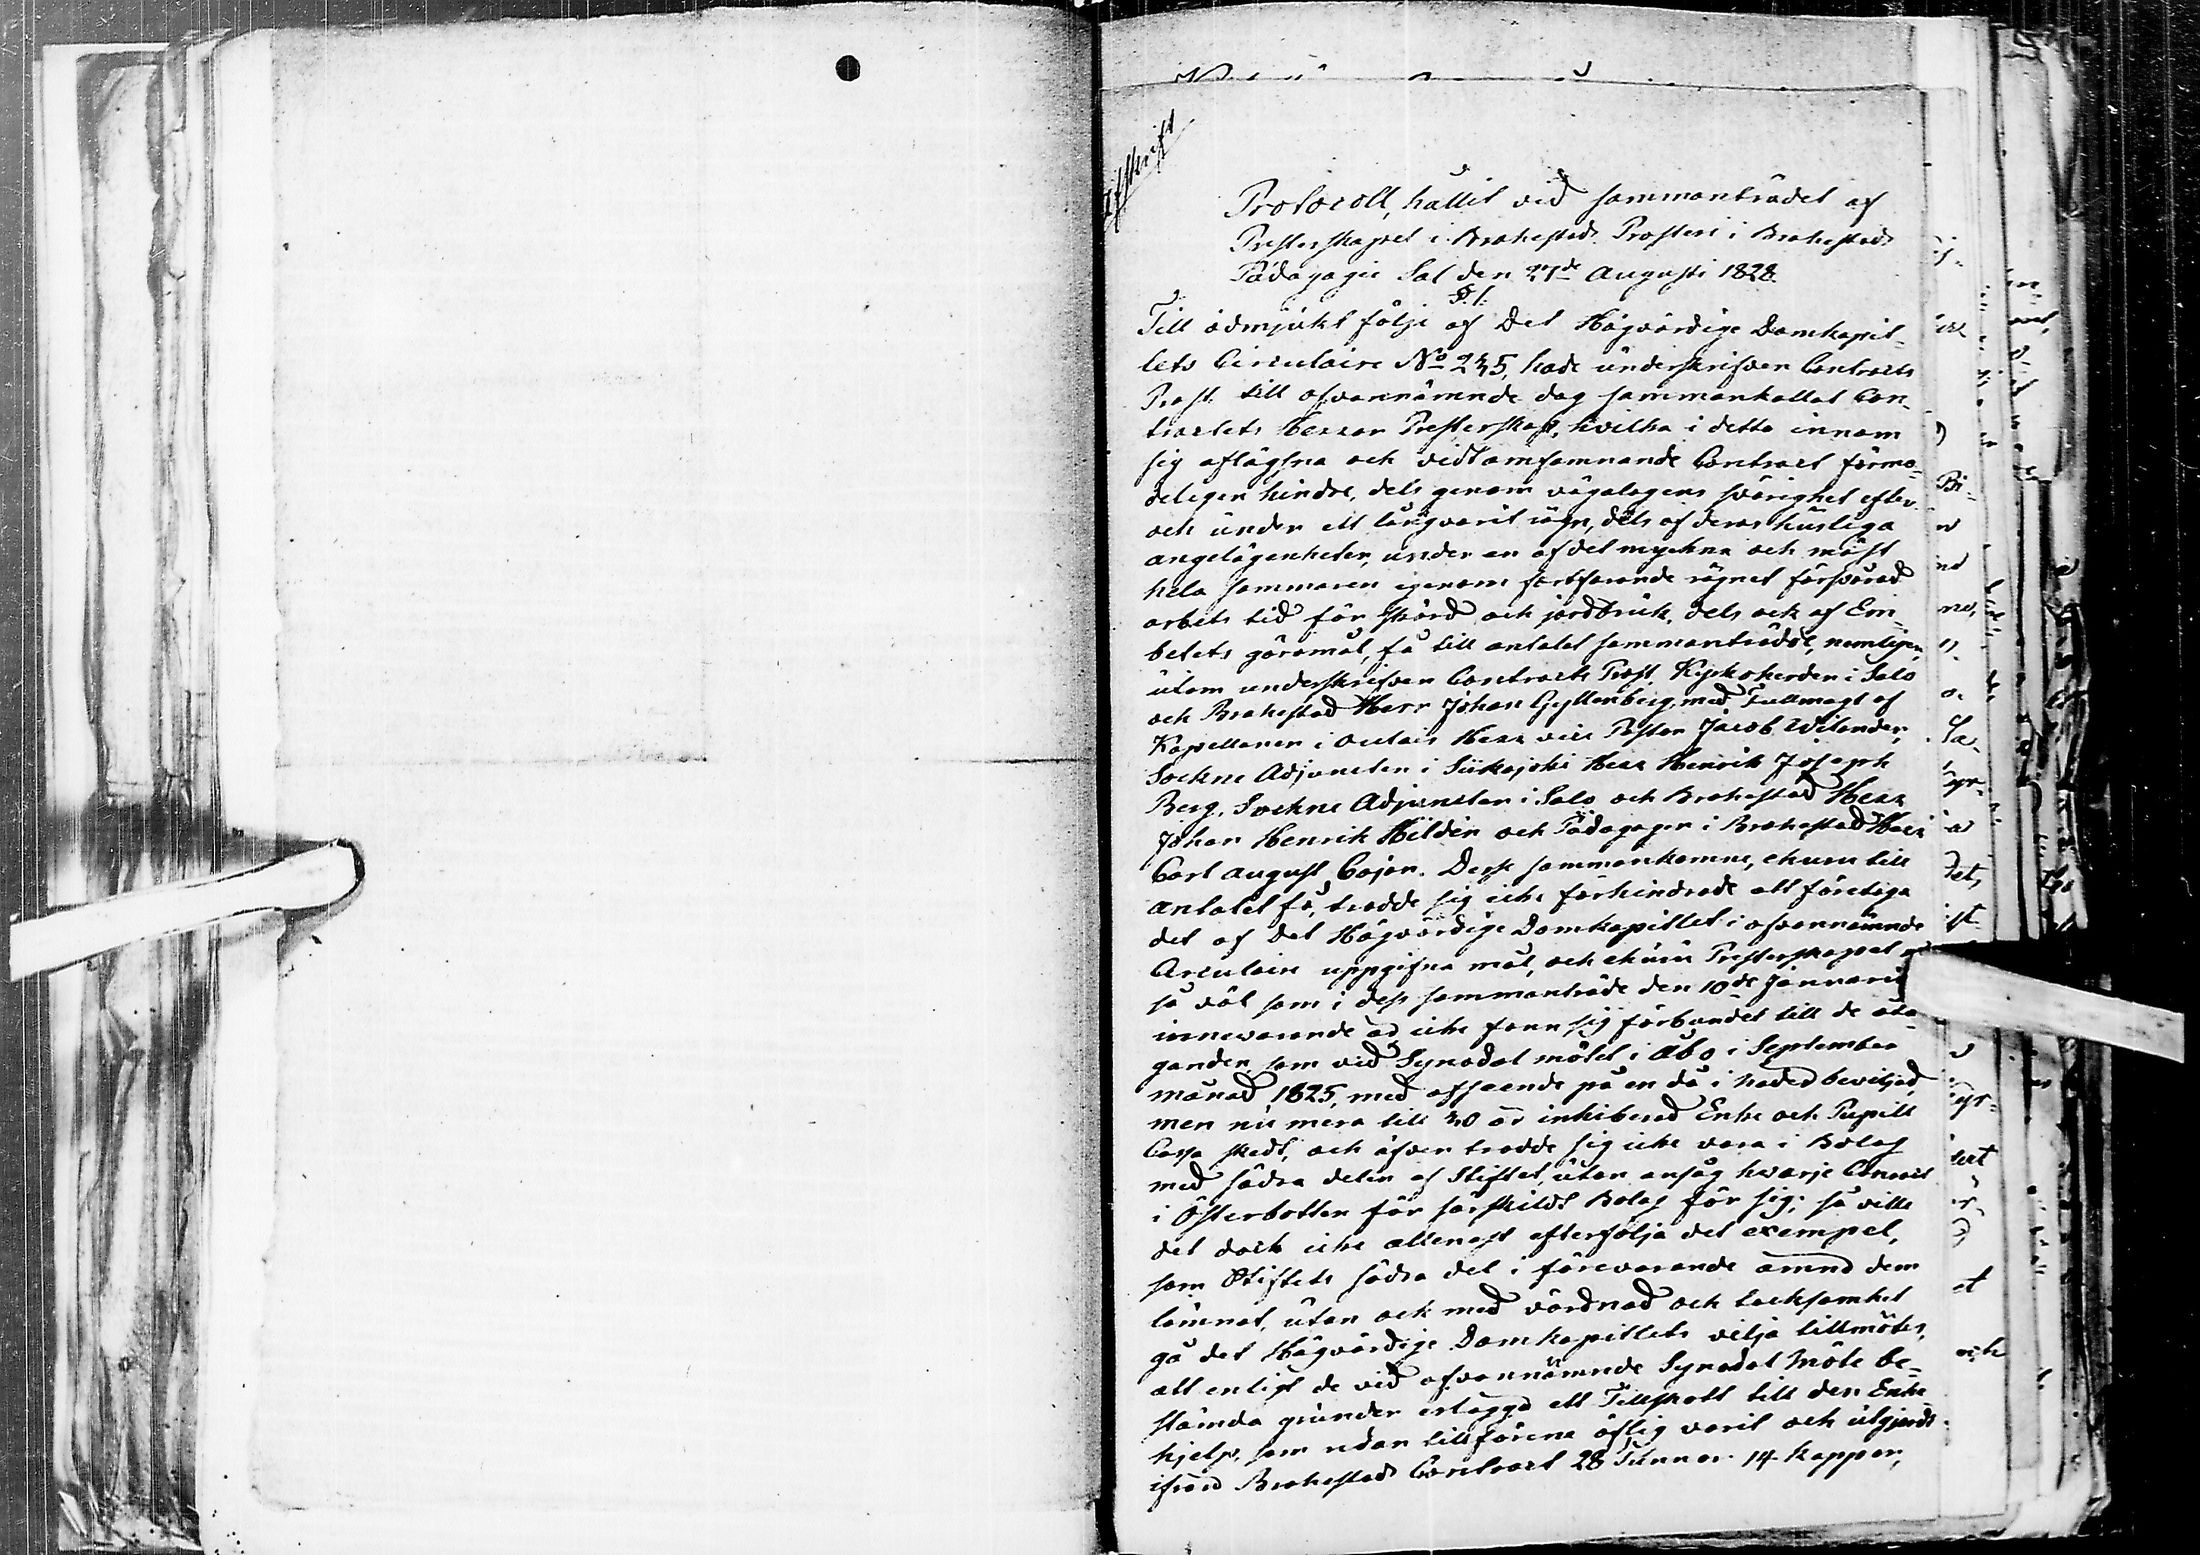 Afskrift
Protocoll, hållit vid sammanträdet af
Presterskapet i Brahestads Prosteri i Brahestads
Pädagogie Sal den 27de Augusti 1828.
§. 1.
Till ödmjukt följe af Det Högvördige Domkapit-
lets Circulaire No 235, hade underskrifven Contracts
Prost till ofvannämnde dag sammankallat Con-
tractets Herrar Presterskap, hvilka i detta innom
sig aflägsna och vidtomfamnande Contract förmo-
deligen hindre, dels genom vägalagens svårighet efter
och under ett långvarit rägn, dels af deras husliga
angelägenheter, under en af det myckna och mäst
hela sommaren igenom fortfarande rägnet försvårad
arbets tid för skörd och jordbruk, dels ock af Em-
betets göromål, få till antalet sammanträdde, nemligen
utom underskrifven Contracts Prost, Kyrkoherden i Salo
och Brahestad Herr Johan Gyllenberg, med Fullmagt af
Kapellanen i Oulais Herr vice Pastor Jacob Wilander,
Sockne Adjuncten i Siikajoki Herr Henrik Joseph
Berg, Sockne Adjuncten i Salo och Brahestad Herr
Johan Henrik Hildén och Pädagogen i Brahestad Herr
Carl August Cajan. Desse sammankomne, ehuru till
antalet få, trodde sig icke förhindrade att företaga
det af Det Högvördige Domkapitlet i ofvannämnde
Circulaire uppgifna mål, och ehuru Presterskapet
så väl som i dess sammanträde den 10de Januarii
innevarande år icke fann sig förbundet till de åta-
ganden, som vid Synodal mötet i Åbo i September
månad 1825, med afseende på en då i nåder beviljad,
men nu mera till 30 år inhiberad Enke och Pupill
Cassa skedt, och äfven trodde sig icke vara i Bolag
med södra delen af Stiftet, utan ansåg hvarje Contract
i Österbotten för särskildt Bolag för sig; så ville
det dock icke allenast efterfölja det exempel,
som Stiftets södra del i förevarande ämne dem
lämnat, utan ock med vördnad och tacksamhet
gå det Högvördige Domkapitlets vilja tillmötes,
att enligt de vid ofvannämnde Synodal Möte be-
stämda grunder erlägga ett Tillskott till den Enke
hjelp, som redan tillförene öflig varit och utgjorde
ifrån Brahestads Contract 28 Tunnor 14 kappar,